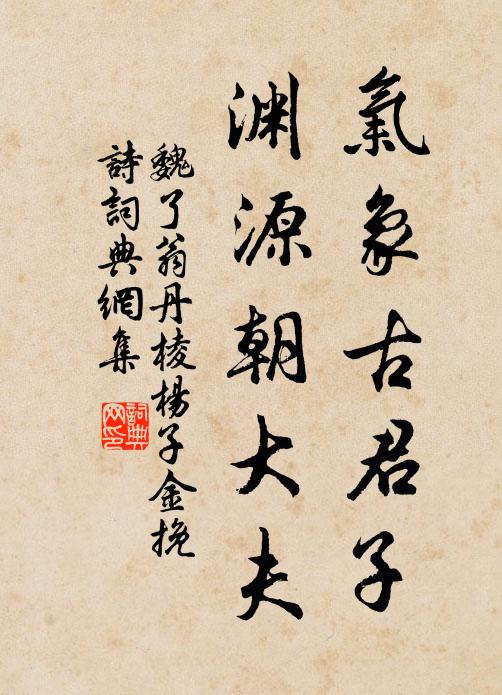 氣象古君子
渊源朝大夫
魏了翁丹棱楊子金挽
詩詞典網集
詞典网印